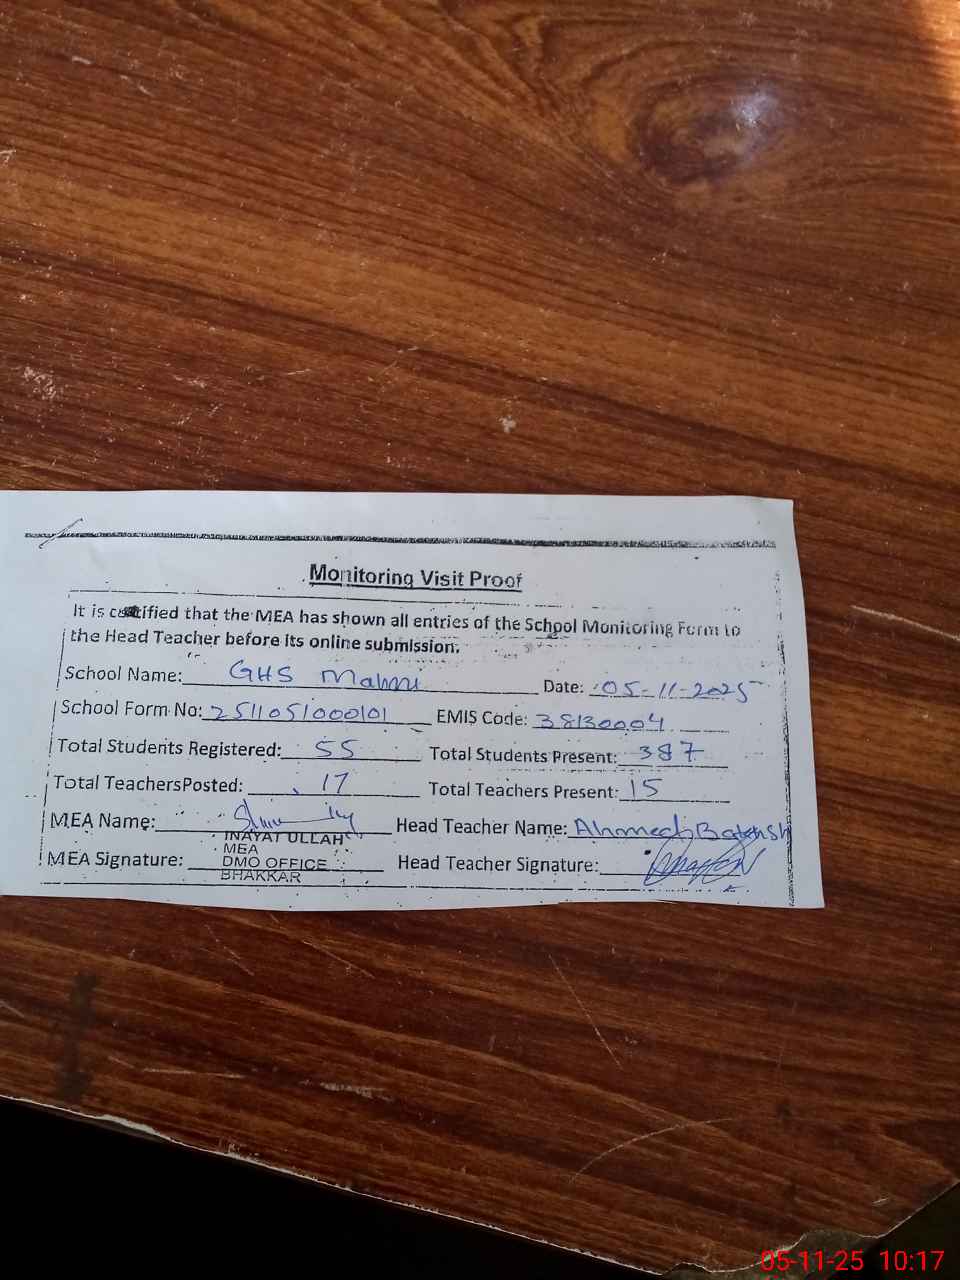 Monitoring Visit Proof
It is certified that the MEA has shown all entries of the School Monitoring Form to
the Head Teacher before its online submission.
School Name: GHS Mahni Date: 05-11-2025
School Form No: 2511051000101 EMIS Code: 38130004
Total Students Registered: 55 Total Students Present: 387
Total TeachersPosted: 17 Total Teachers Present: 15
MEA Name: Head Teacher Name: Ahmed Bakhsh
INAYAT ULLAH
MEA
MEA Signature: DMO OFFICE Head Teacher Signature:
BHAKKAR
05-11-25 10:17